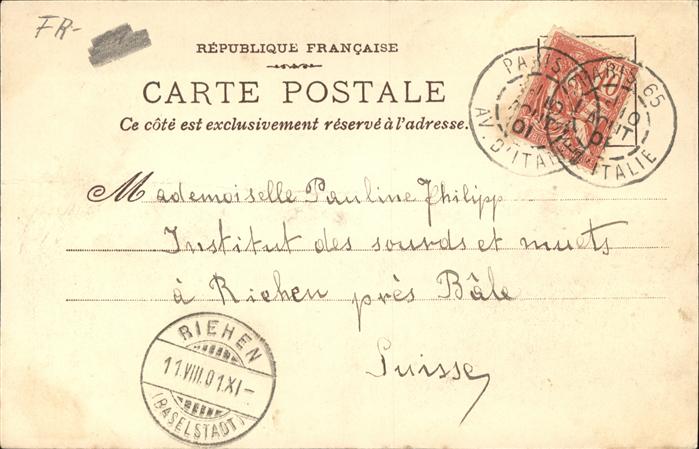 FR-
RÉPUBLIQUE FRANÇAISE
CARTE POSTALE
Ce côté est exclusivement réservé à l'adresse.
PARIS
AV. D'ITALIE
10
AOUT
01
PARIS 65
AV. D'ITALIE
10
AOUT
01
Mademoiselle Pauline Philipp
Institut des sourds et muets
à Riehen près Bâle
Suisse
RIEHEN
11.VIII.01.XI-
(BASELSTADT)